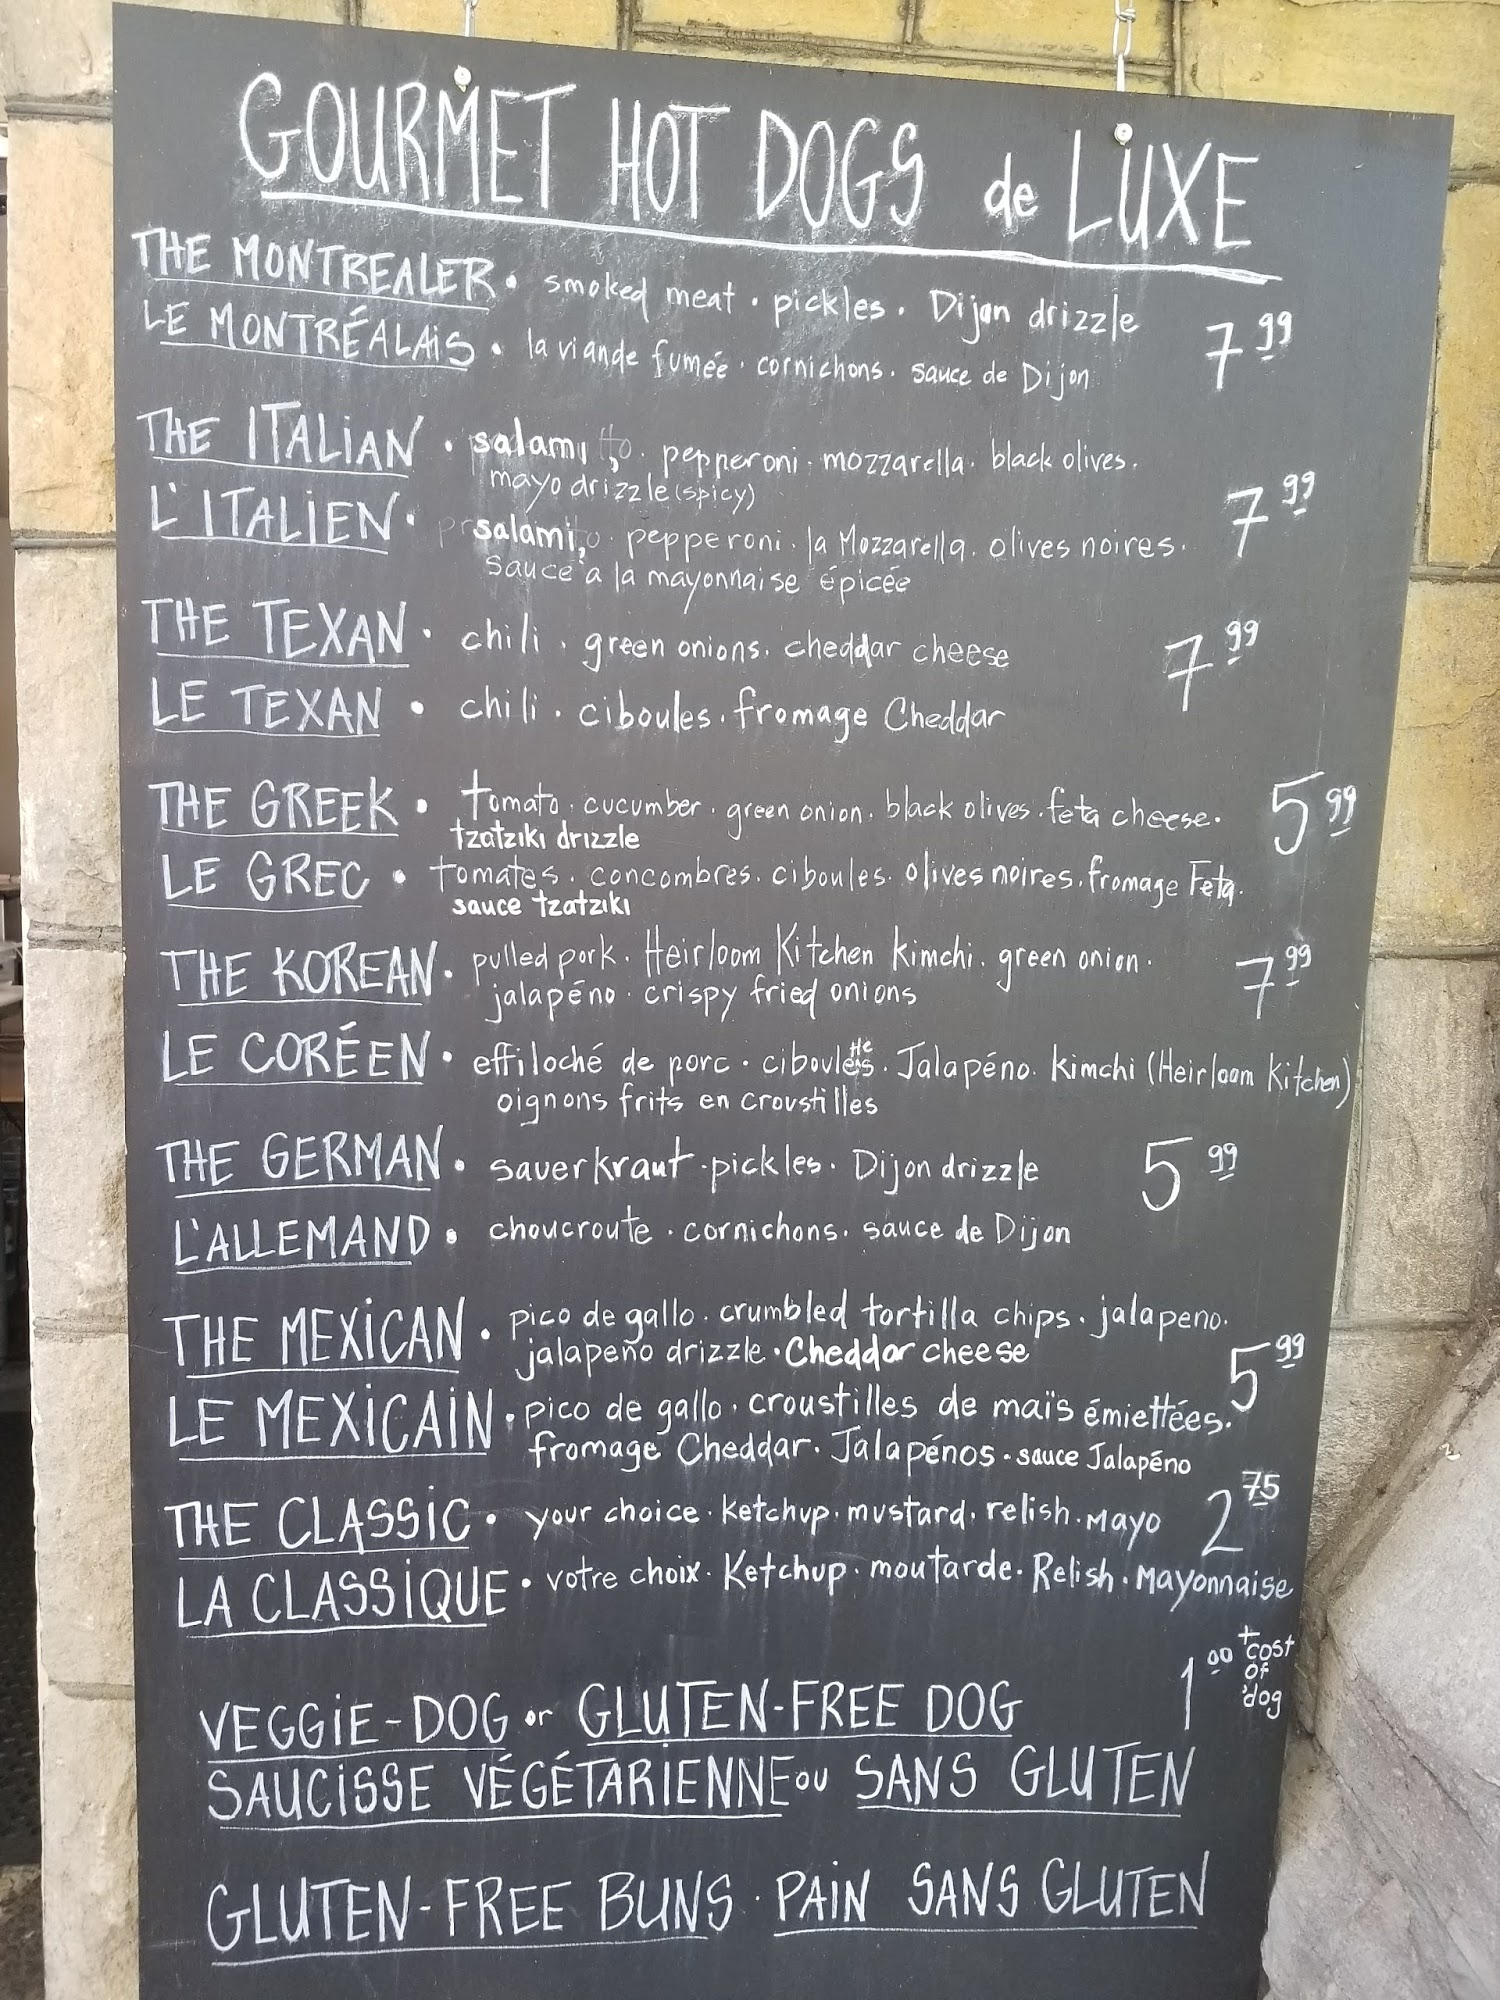 GOURMET HOT DOGS de LUXE
THE MONTREALER • smoked meat • pickles • Dijon drizzle 7.99
LE MONTRÉALAIS • la viande fumée • cornichons • sauce de Dijon
THE ITALIAN • salami, pepperoni • mozzarella • black olives •
mayo drizzle (spicy) 7.99
L'ITALIEN • salami, pepperoni • la Mozzarella • olives noires •
Sauce à la mayonnaise épicée
THE TEXAN • chili • green onions • cheddar cheese 7.99
LE TEXAN • chili • ciboules • fromage Cheddar
THE GREEK • tomato • cucumber • green onion • black olives • feta cheese • 5.99
tzatziki drizzle
LE GREC • tomates • concombres • ciboules • olives noires • fromage Feta •
sauce tzatziki
THE KOREAN • pulled pork • Heirloom Kitchen Kimchi • green onion • 7.99
jalapéno • crispy fried onions
LE CORÉEN • effiloché de porc • ciboules • Jalapéno • Kimchi (Heirloom Kitchen)
oignons frits en croustilles
THE GERMAN • sauerkraut • pickles • Dijon drizzle 5.99
L'ALLEMAND • choucroute • cornichons • sauce de Dijon
THE MEXICAN • pico de gallo • crumbled tortilla chips • jalapeno •
jalapeno drizzle • Cheddar cheese 5.99
LE MEXICAIN • pico de gallo • croustilles de maïs émiettées •
fromage Cheddar • Jalapénos • sauce Jalapéno
THE CLASSIC • your choice • Ketchup • mustard • relish • Mayo 2.75
LA CLASSIQUE • votre choix • Ketchup • moutarde • Relish • Mayonnaise
VEGGIE-DOG or GLUTEN-FREE DOG 1.00 + cost of dog
SAUCISSE VÉGÉTARIENNE ou SANS GLUTEN
GLUTEN-FREE BUNS • PAIN SANS GLUTEN